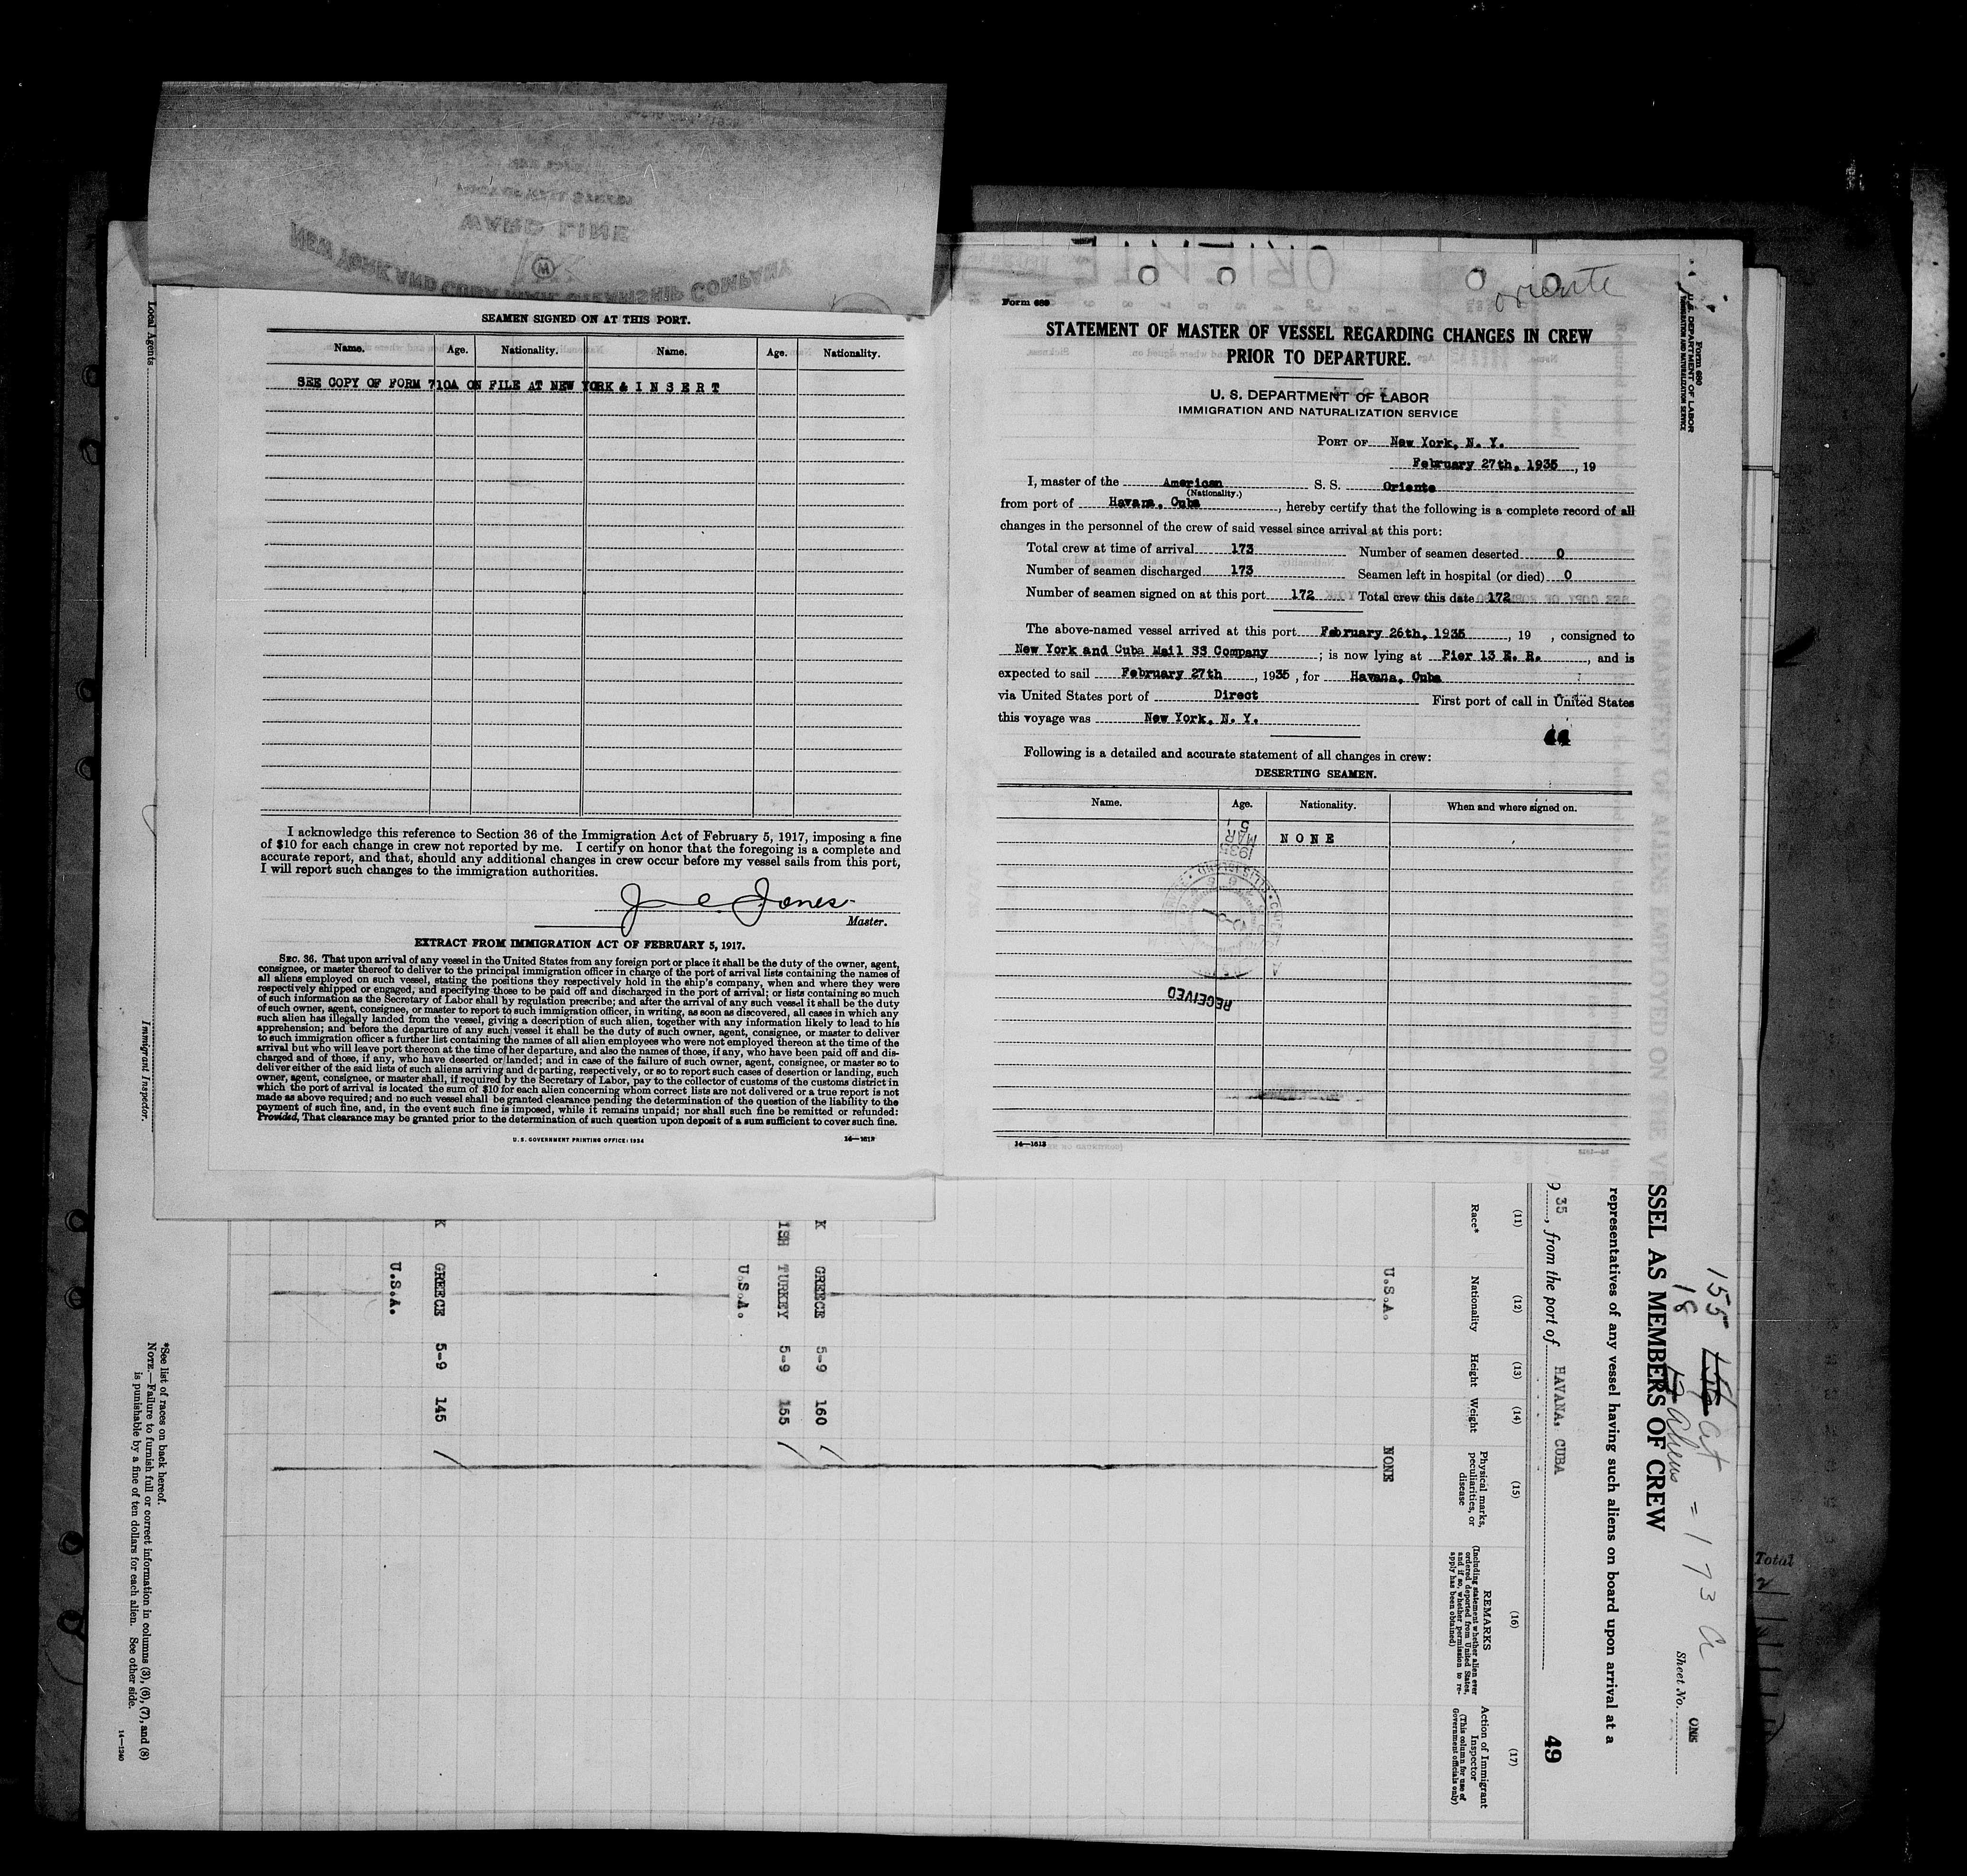 NEW YORK AND CUBA MAIL STEAMSHIP COMPANY
WARD LINE
SEAMEN SIGNED ON AT THIS PORT.
Name. Age. Nationality. Name. Age. Nationality.
SEE COPY OF FORM 710A ON FILE AT NEW YORK & I N S E R T
I acknowledge this reference to Section 36 of the Immigration Act of February 5, 1917, imposing a fine
of $10 for each change in crew not reported by me. I certify on honor that the foregoing is a complete and
accurate report, and that, should any additional changes in crew occur before my vessel sails from this port,
I will report such changes to the immigration authorities.
J C Jones
Master.
EXTRACT FROM IMMIGRATION ACT OF FEBRUARY 5, 1917.
SEC. 36. That upon arrival of any vessel in the United States from any foreign port or place it shall be the duty of the owner, agent,
consignee, or master thereof to deliver to the principal immigration officer in charge of the port of arrival lists containing the names of
all aliens employed on such vessel, stating the positions they respectively hold in the ship's company, when and where they were
respectively shipped or engaged, and specifying those to be paid off and discharged in the port of arrival; or lists containing so much
of such information as the Secretary of Labor shall by regulation prescribe; and after the arrival of any such vessel it shall be the duty
of such owner, agent, consignee, or master to report to such immigration officer, in writing, as soon as discovered, all cases in which any
such alien has illegally landed from the vessel, giving a description of such alien, together with any information likely to lead to his
apprehension; and before the departure of any such vessel it shall be the duty of such owner, agent, consignee, or master to deliver
to such immigration officer a further list containing the names of all alien employees who were not employed thereon at the time of the
arrival but who will leave port thereon at the time of her departure, and also the names of those, if any, who have been paid off and dis-
charged and of those, if any, who have deserted or landed; and in case of the failure of such owner, agent, consignee, or master so to
deliver either of the said lists of such aliens arriving and departing, respectively, or so to report such cases of desertion or landing, such
owner, agent, consignee, or master shall, if required by the Secretary of Labor, pay to the collector of customs of the customs district in
which the port of arrival is located the sum of $10 for each alien concerning whom correct lists are not delivered or a true report is not
made as above required; and no such vessel shall be granted clearance pending the determination of the question of the liability to the
payment of such fine, and, in the event such fine is imposed, while it remains unpaid; nor shall such fine be remitted or refunded:
Provided, That clearance may be granted prior to the determination of such question upon deposit of a sum sufficient to cover such fine.
U. S. GOVERNMENT PRINTING OFFICE: 1934 14—1613
Oriente
Form 689
STATEMENT OF MASTER OF VESSEL REGARDING CHANGES IN CREW
PRIOR TO DEPARTURE.
U. S. DEPARTMENT OF LABOR
IMMIGRATION AND NATURALIZATION SERVICE
PORT OF New York, N. Y.
February 27th, 1935, 19
I, master of the American S. S. Oriente
(Nationality.)
from port of Havana, Cuba, hereby certify that the following is a complete record of all
changes in the personnel of the crew of said vessel since arrival at this port:
Total crew at time of arrival 173 Number of seamen deserted 0
Number of seamen discharged 173 Seamen left in hospital (or died) 0
Number of seamen signed on at this port 172 Total crew this date 172
The above-named vessel arrived at this port February 26th, 1935, 19 , consigned to
New York and Cuba Mail SS Company; is now lying at Pier 13 E. R., and is
expected to sail February 27th, 1935, for Havana, Cuba
via United States port of Direct First port of call in United States
this voyage was New York, N. Y.
44
Following is a detailed and accurate statement of all changes in crew:
DESERTING SEAMEN.
Name. Age. Nationality. When and where signed on.
N O N E
1935
MAR
5
RECEIVED
14—1613
Form 680
U. S. DEPARTMENT OF LABOR
IMMIGRATION AND NATURALIZATION SERVICE
155
18
Aliens
= 173 a
Sheet No. ONE
SSEL AS MEMBERS OF CREW
representatives of any vessel having such aliens on board upon arrival at a
35, from the port of HAVANA, CUBA
49
(11) (12) (13) (14) (15) (16) (17)
Race* Nationality Height Weight
Physical marks, peculiarities, or disease
REMARKS
(Including statement whether alien ever ordered deported from United States, and if so, whether permission to re-apply has been obtained)
Action of Immigrant Inspector
(This column for use of Government officials only)
U.S.A. NONE
K GREECE 5-9 160
ISH TURKEY 5-9 155
U.S.A.
K GREECE 5-9 145
U.S.A.
*See list of races on back hereof.
NOTE.—Failure to furnish full or correct information in columns (3), (6), (7), and (8)
is punishable by a fine of ten dollars for each alien. See other side.
14—1240
Local Agents
Immigrant Inspector.
Total